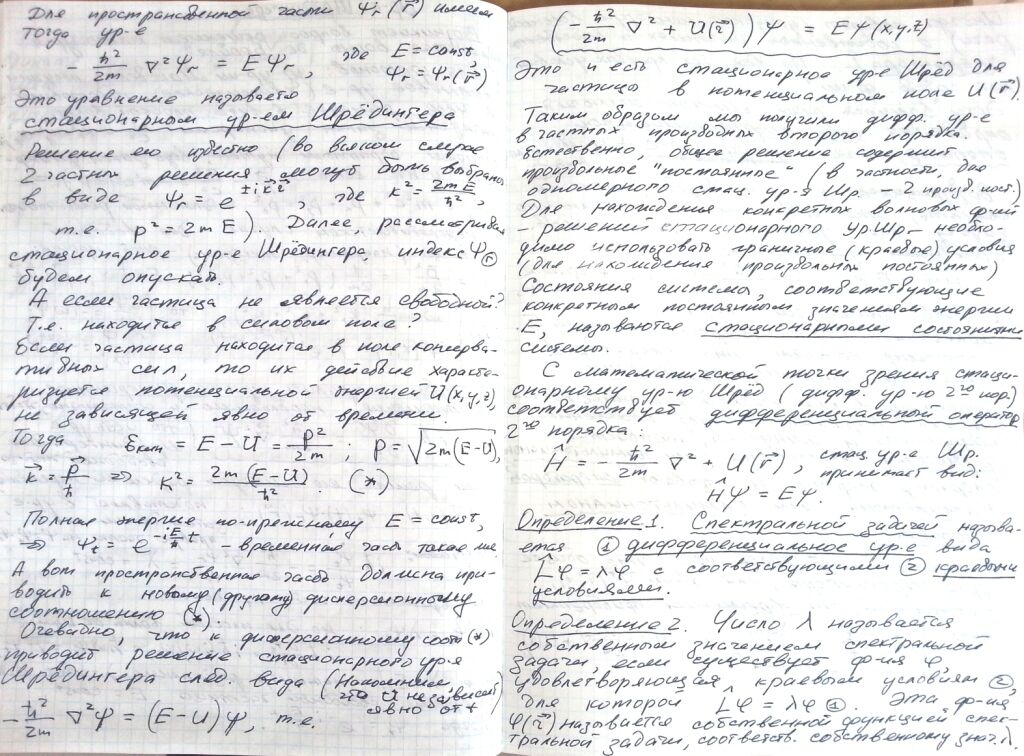 Для пространственной части Ψr(r⃗) имеем
тогда ур-е
- ħ²/2m ∇²Ψr = EΨr, где E = const, Ψr = Ψr(r⃗)
Это уравнение называется
стационарным ур-ем Шрёдингера
Решение его известно (во всяком случае
2 частных решения могут быть выбраны
в виде Ψr = e^(±ik⃗r⃗), где k² = 2mE/ħ²,
т.е. p² = 2mE). Далее, рассматривая
стационарное ур-е Шрёдингера, индекс Ψr
будем опускать.
А если частица не является свободной?
Т.е. находится в силовом поле?
Если частица находится в поле консерва-
тивных сил, то их действие характе-
ризуется потенциальной энергией U(x,y,z),
не зависящей явно от времени.
Тогда Eкин = E - U = p²/2m; p = √(2m(E-U)),
k⃗ = p⃗/ħ ⇒ k² = 2m(E-U)/ħ². (*)
Полная энергия по-прежнему E = const,
⇒ Ψt = e^(-i(E/ħ)t) - временная часть такая же.
А вот пространственная часть должна при-
водить к новому (другому) дисперсионному
соотношению (*).
Очевидно, что к дисперсионному соотн (*)
приводит решение стационарного ур-я
Шрёдингера след. вида (Напомним,
что U не зависит
явно от t)
- ħ²/2m ∇²Ψ = (E-U)Ψ, т.е.
(- ħ²/2m ∇² + U(r⃗))Ψ = EΨ(x,y,z)
Это и есть стационарное ур-е Шрёд для
частицы в потенциальном поле U(r⃗).
Таким образом мы получили дифф. ур-е
в частных производных второго порядка.
Естественно, общее решение содержит
произвольные "постоянные" (в частности, для
одномерного стац. ур-я Шр. - 2 произв. пост.)
Для нахождения конкретных волновых ф-ий
- решений стационарного Ур.Шр - необхо-
димо использовать граничные (краевые) условия
(для нахождения произвольных постоянных)
Состояния системы, соответствующие
конкретным постоянным значениям энергии
E, называются стационарными состояниями
системы.
С математической точки зрения стаци-
онарному ур-ю Шрёд (дифф. ур-ю 2го пор.)
соответствует дифференциальный оператор
2го порядка:
Ĥ = - ħ²/2m ∇² + U(r⃗), стац. ур-е Шр.
принимает вид:
ĤΨ = EΨ.
Определение 1. Спектральной задачей называ-
ется ① дифференциальное ур-е вида
L̂φ = λφ с соответствующими ② краевыми
условиями.
Определение 2. Число λ называется
собственным значением спектральной
задачи, если существует ф-ия φ,
удовлетворяющая краевым условиям ②,
для которой L̂φ = λφ ①. Эта ф-ия
φ(r⃗) называется собственной функцией спек-
тральной задачи, соответств. собственному знач. λ